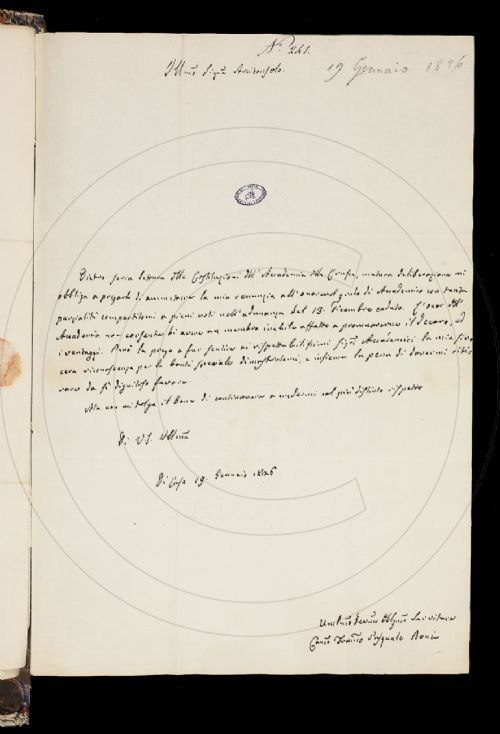 N.° 221.
Illmo Sigr Arciconsolo.
19 Gennaio 1826
Dietro seria lettura delle Costituzioni dell'Accademia della Crusca, matura deliberazione mi
obbliga a pregarla di annunziare la mia renunzia all' grado di Accademico con tanta
parzialità compartitomi a pieni voti nell'adunanza del 13. Dicembre caduto. L'onor dell'
Accademia non consente di avere un membro inabile affatto a promuoverne il decoro, ed
i vantaggi. Però la prego a far sentire ai rispettabilissimi Sigri Accademici la mia sin
cera riconoscenza per la bontà speciale dimostratami, e insieme la pena di dovermi riti
rare da sì favore.
Ma non mi tolga il bene di continuare a vedermi col più distinto rispetto
Di VS. Illma
Di Casa 19. Gennaio 1826
Umilmo Devmo Obblgmo Servitore
Franco Pasquale Boni